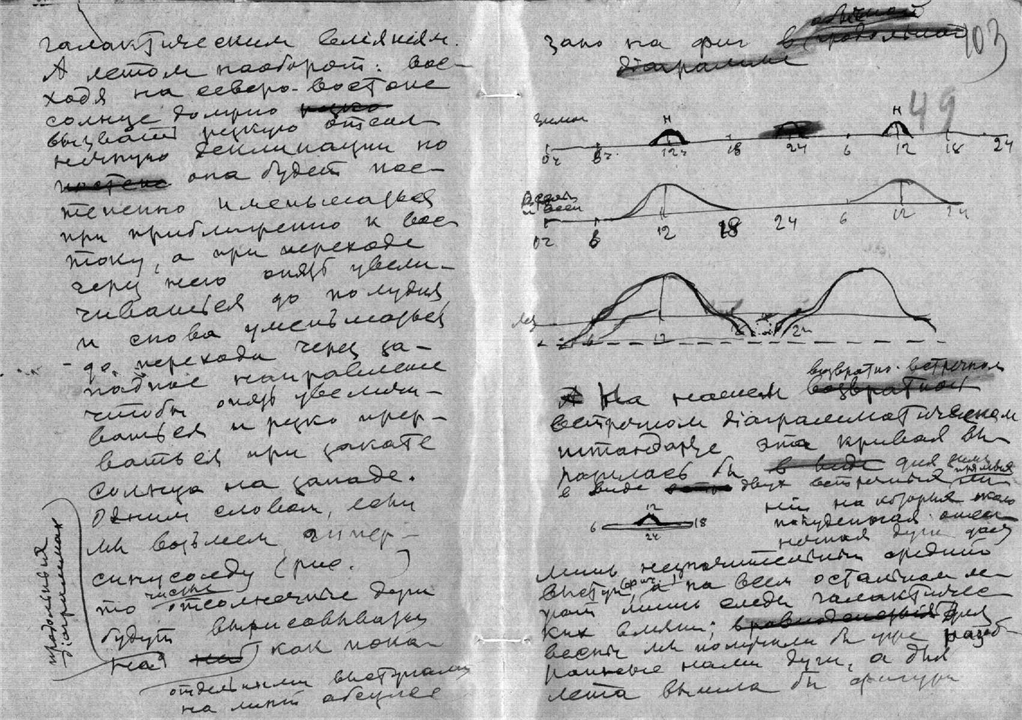 галактическим влияниям.
А летом наоборот: вос-
ходя на северо-востоке
солнце должно резко
вызвать резкую отсол
нечную деклинацию но
она будет пос-
тепенно уменьшаться
при приближении к вос
току, а при переходе
через него опять увели-
чиваться до полудня
и снова уменьшаться
до перехода через за-
падное направление
чтобы опять увеличи-
ваться и резко прер-
ваться при закате
солнца на западе.
Одним словом, если
мы возьмем гипер-
синусоиду (рис. )
то чисто отсолнечные дуги
будут вырисовывать
на как пока-
отдельными выступами
на линии абсцисс
продольных
диаграммах
зано на фиг
диаграмме
103
49
зимой
Н Н
0ч 6ч. 12ч 18 24 6 12 18 24
0ч 6 12 18 24 6 12 24
6 12 18 24
На нашем возвратно-встречном
встречном диаграмматическом
штандарте эта кривая вы-
разилась бы в виде для зимы
в виде двух встречных прямых ли
ний на которых около
полуденная отсол
нечная дуга даст
12
6 18
24
лишь незначительный средний
выступ (фиг. ), а на всем остальном и-
грают лишь следы галактичес
ких влияний; для
весны мы получили бы уже разоб
ранные нами дуги, а для
лета вышла бы фигура